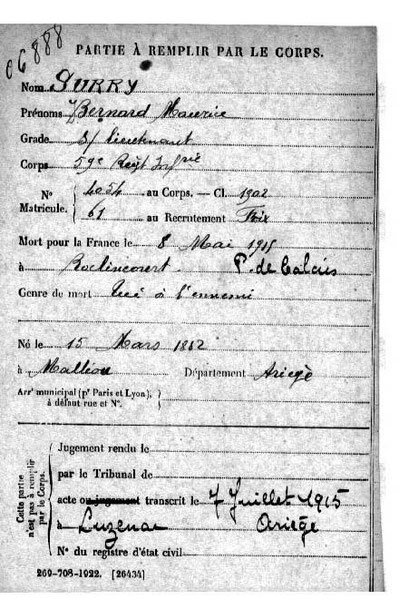 06888
PARTIE À REMPLIR PAR LE CORPS.
Nom SURRY
Prénoms Bernard Maurice
Grade S/ lieutenant
Corps 59e Regt Infrie
N° Matricule. 4054 au Corps. — Cl. 1902
61 au Recrutement Foix
Mort pour la France le 8 Mai 1915
à Roclincourt P. de Calais
Genre de mort Tué à l'ennemi
Né le 15 Mars 1882
à Malléon Département Ariège
Arrt municipal (pr Paris et Lyon),
à défaut rue et N°.
Cette partie
n'est pas à remplir
par le Corps.
Jugement rendu le
par le Tribunal de
acte ou jugement transcrit le 7 Juillet 1915
à Luzenac Ariège
N° du registre d'état civil
269-708-1922. [26434]